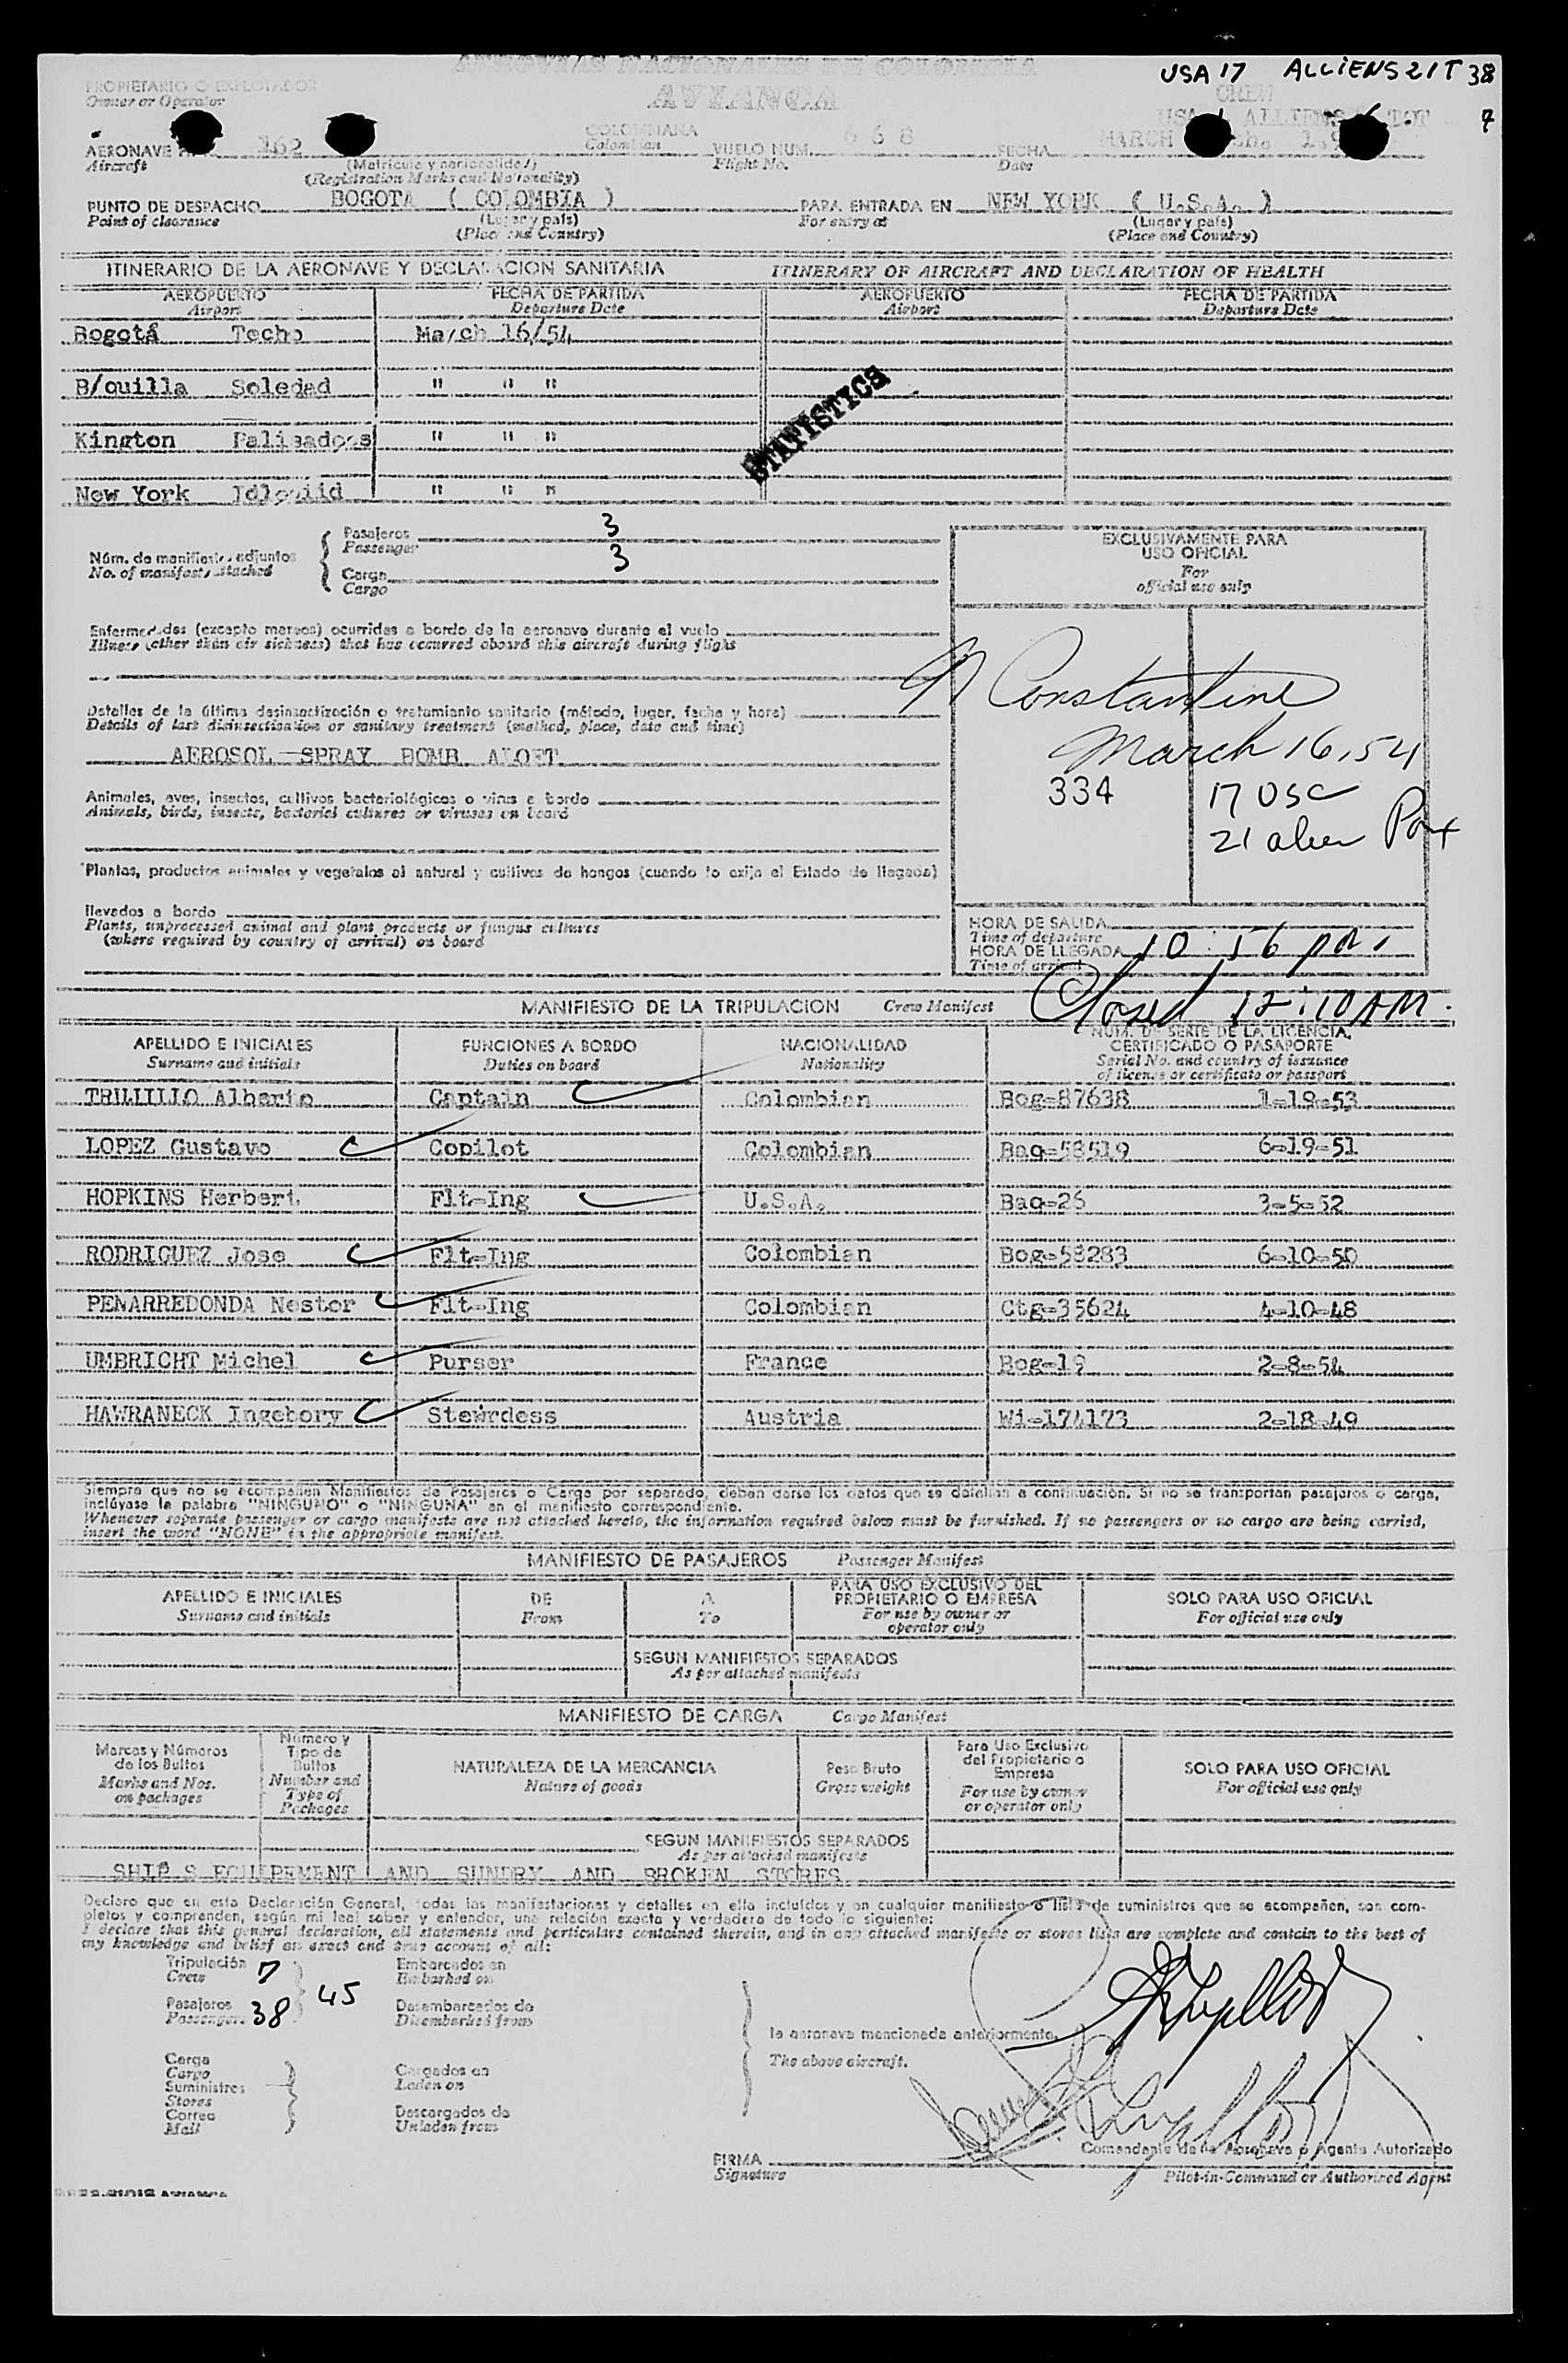 AEROVIAS NACIONALES DE COLOMBIA
USA 17 ALLIENS 21 T 38
PROPIETARIO O EXPLOTADOR
Owner or Operator
AVIANCA
CREW
USA 1 ALLIENS 6 TOT 7
AERONAVE 162
Aircraft
(Matrícula y nacionalidad)
(Registration Marks and Nationality)
COLOMBIANA
Colombian
VUELO NUM. 668
Flight No.
FECHA MARCH
Date
PUNTO DE DESPACHO BOGOTA ( COLOMBIA )
Point of clearance
(Lugar y país)
(Place and Country)
PARA ENTRADA EN NEW YORK ( U.S.A. )
For entry at
(Lugar y país)
(Place and Country)
ITINERARIO DE LA AERONAVE Y DECLARACION SANITARIA ITINERARY OF AIRCRAFT AND DECLARATION OF HEALTH
AEROPUERTO FECHA DE PARTIDA AEROPUERTO FECHA DE PARTIDA
Airport Departure Date Airport Departure Date
Bogotá Techo March 16/54
B/quilla Soledad " " "
Kington Palisadoes " " "
New York Idlewild " " "
STATISTICS
Núm. de manifiestos adjuntos
No. of manifests attached
Pasajeros 3
Passenger
Carga 3
Cargo
EXCLUSIVAMENTE PARA
USO OFICIAL
For
official use only
Enfermedades (excepto mareos) ocurridas a bordo de la aeronave durante el vuelo
Illness (other than air sickness) that has occurred aboard this aircraft during flight
Detalles de la última desinsectización o tratamiento sanitario (método, lugar, fecha y hora)
Details of last disinsectisation or sanitary treatment (method, place, date and time)
AEROSOL SPRAY BOMB ALOFT
Animales, aves, insectos, cultivos bacteriológicos o virus a bordo
Animals, birds, insects, bacterial cultures or viruses on board
Plantas, productos animales y vegetales al natural y cultivos de hongos (cuando lo exija el Estado de llegada)
llevados a bordo
Plants, unprocessed animal and plant products or fungus cultures
(where required by country of arrival) on board
Constantine
March 16, 54
334 17 USC
21 alien
HORA DE SALIDA
Time of departure
HORA DE LLEGADA 10:56 pm.
Time of arrival
Closed 12:10 AM.
MANIFIESTO DE LA TRIPULACION Crew Manifest
APELLIDO E INICIALES FUNCIONES A BORDO NACIONALIDAD NUM. DE SERIE DE LA LICENCIA, CERTIFICADO O PASAPORTE
Surname and initials Duties on board Nationality Serial No. and country of issuance of license or certificate or passport
TRUJILLO Alberto Captain Colombian Bog-87638 1-19-53
LOPEZ Gustavo Copilot Colombian Baq-58519 6-19-51
HOPKINS Herbert. Flt-Ing U.S.A. Baq-26 3-5-52
RODRIGUEZ Jose Flt-Ing Colombian Bog-58283 6-10-50
PENARREDONDA Nestor Flt-Ing Colombian Ctg-35624 4-10-48
UMBRICHT Michel Purser France Bog-19 2-8-54
HAWRANECK Ingebory Stewrdess Austria Wi-174173 2-18-49
Siempre que no se acompañen Manifiestos de Pasajeros o Carga por separado, deben darse los datos que se detallan a continuación. Si no se transportan pasajeros o carga,
inclúyase la palabra "NINGUNO" o "NINGUNA" en el manifiesto correspondiente.
Whenever separate passenger or cargo manifests are not attached hereto, the information required below must be furnished. If no passengers or no cargo are being carried,
insert the word "NONE" in the appropriate manifest.
MANIFIESTO DE PASAJEROS Passenger Manifest
APELLIDO E INICIALES DE A PARA USO EXCLUSIVO DEL PROPIETARIO O EMPRESA SOLO PARA USO OFICIAL
Surname and initials From To For use by owner or operator only For official use only
SEGUN MANIFIESTOS SEPARADOS
As per attached manifests
MANIFIESTO DE CARGA Cargo Manifest
Marcas y Números de los Bultos Número y Tipo de Bultos NATURALEZA DE LA MERCANCIA Peso Bruto Para Uso Exclusivo del Propietario o Empresa SOLO PARA USO OFICIAL
Marks and Nos. on packages Number and Type of Packages Nature of goods Gross weight For use by owner or operator only For official use only
SEGUN MANIFIESTOS SEPARADOS
As per attached manifests
SHIP S EQUIPEMENT AND SUNDRY AND BROKEN STORES
Declaro que en esta Declaración General, todas las manifestaciones y detalles en ella incluídos y en cualquier manifiesto o lista de suministros que se acompañen, son com-
pletos y comprenden, según mi leal saber y entender, una relación exacta y verdadera de todo lo siguiente:
I declare that this general declaration, all statements and particulars contained therein, and in any attached manifests or stores lists are complete and contain to the best of
my knowledge and belief an exact and true account of all:
Tripulación 7
Crew
Pasajeros 38
Passengers
45
Embarcados en
Embarked on
Desembarcados de
Disembarked from
Carga
Cargo
Suministros
Stores
Correo
Mail
Cargados en
Laden on
Descargados de
Unladen from
la aeronave mencionada anteriormente.
The above aircraft.
FIRMA
Signature
Comandante de la Aeronave o Agente Autorizado
Pilot-in-Command or Authorized Agent